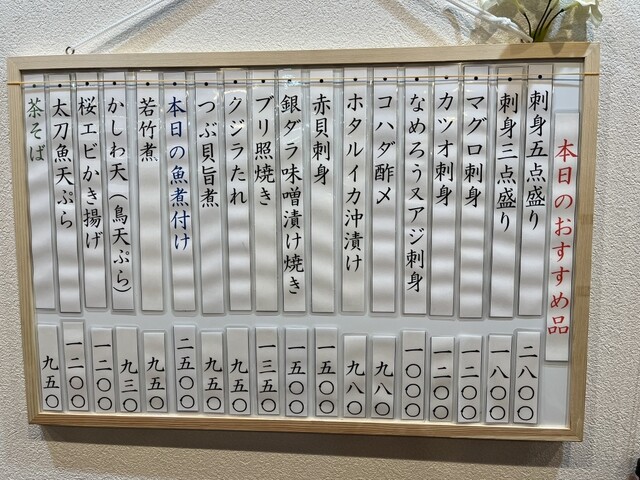 本日のおすすめ品
刺身五点盛り 二八〇〇
刺身三点盛り 一八〇〇
マグロ刺身 一二〇〇
カツオ刺身 一二〇〇
なめろう又アジ刺身 一〇〇〇
コハダ酢〆 九八〇
ホタルイカ沖漬け 九八〇
赤貝刺身 一五〇〇
銀ダラ味噌漬け焼き 一五〇〇
ブリ照焼き 一三五〇
クジラたれ 九五〇
つぶ貝旨煮 九五〇
本日の魚煮付け 二五〇〇
若竹煮 九五〇
かしわ天(鳥天ぷら) 九三〇
桜エビかき揚げ 一二〇〇
太刀魚天ぷら 一二〇〇
茶そば 九五〇